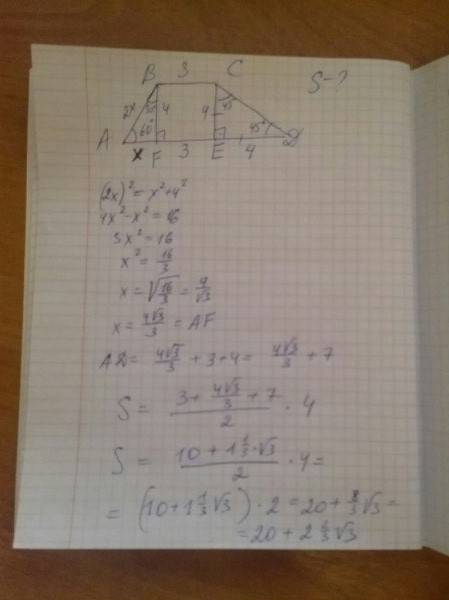 B 3 C S-?
2x 30° 4 4 45°
A 60° 45° D
x F 3 E 4
(2x)² = x² + 4²
4x² - x² = 16
3x² = 16
x² = 16/3
x = √(16/3) = 4/√3
x = 4√3/3 = AF
AD = 4√3/3 + 3 + 4 = 4√3/3 + 7
S = (3 + 4√3/3 + 7)/2 · 4
S = (10 + 1 1/3 · √3)/2 · 4 =
= (10 + 1 1/3 √3) · 2 = 20 + 8/3 √3 =
= 20 + 2 2/3 √3